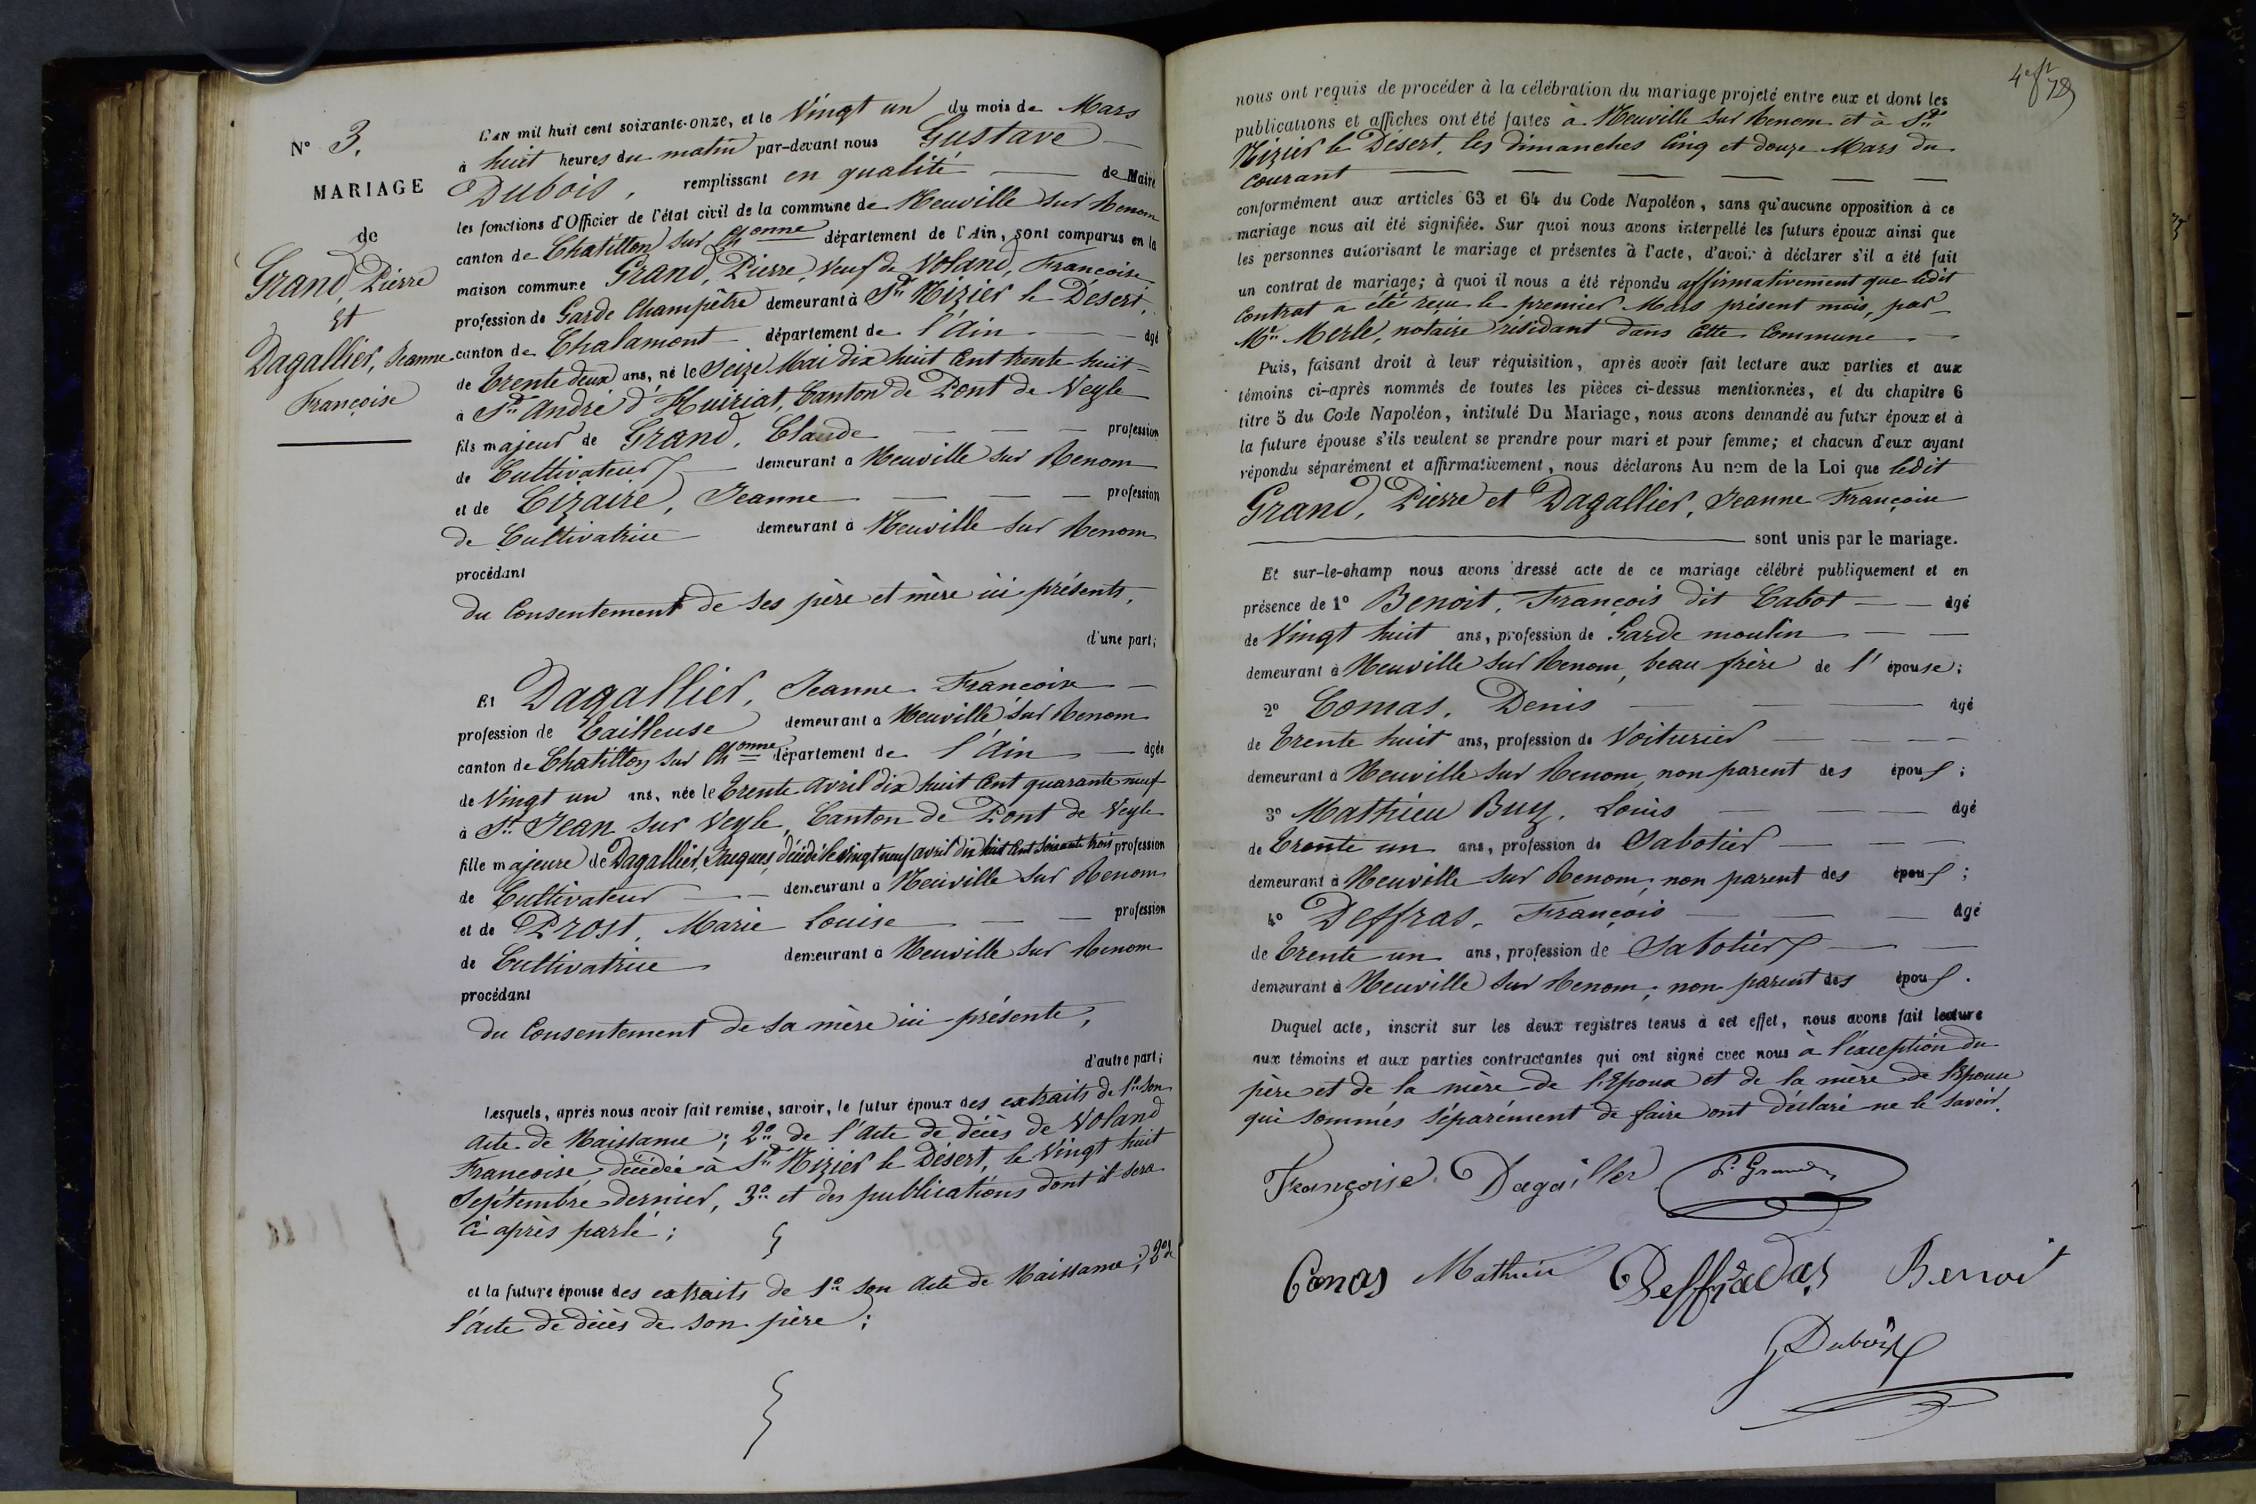 N° 3.
MARIAGE
de
Grand, Pierre
Et
Dagallier, Jeanne
Françoise
L'AN mil huit cent soixante-onze, et le Vingt un du mois de Mars
à huit heures du matin par-devant nous Gustave
Dubois, remplissant en qualité de Maire
les fonctions d'Officier de l'état civil de la commune de Neuville sur Renom
canton de Chatillon sur Chonne département de l'Ain, sont comparus en la
maison commune Grand, Pierre, Veuf de Voland, Françoise
profession de Garde Champêtre demeurant à St Nizier le Désert,
canton de Chalamont département de l'Ain âgé
de Trente deux ans, né le Seize Mai dix huit cent trente huit
à St André d'Huiriat, Canton de Pont de Veyle
fils majeur de Grand, Claude profession
de Cultivateur demeurant à Neuville sur Renom
et de Cizaire, Jeanne profession
de Cultivatrice demeurant à Neuville sur Renom
procédant
du Consentement de ses père et mère ici présents,
d'une part;
Et Dagallier, Jeanne Françoise
profession de Tailleuse demeurant à Neuville sur Renom
canton de Chatillon sur Chonne département de l'Ain âgée
de Vingt un ans, née le Trente avril dix huit cent quarante neuf
à St Jean sur Veyle, Canton de Pont de Veyle
fille majeure de Dagallier, Jacques, décédé le vingt neuf avril dix huit cent soixante trois profession
de Cultivateur demeurant à Neuville sur Renom
et de Prost, Marie Louise profession
de Cultivatrice demeurant à Neuville sur Renom
procédant
du Consentement de sa mère ici présente,
d'autre part;
Lesquels, après nous avoir fait remise, savoir, le futur époux des extraits de 1° son
acte de Naissance; 2° de l'acte de décès de Voland
Françoise, décédée à St Nizier le Désert, le Vingt huit
Septembre dernier, 3° et des publications dont il sera
ci après parlé;
et la future épouse des extraits de 1° son acte de Naissance; 2° de
l'acte de décès de son père;
nous ont requis de procéder à la célébration du mariage projeté entre eux et dont les
publications et affiches ont été faites à Neuville sur Renom et à St
Nizier le Désert, les dimanches Cinq et douze Mars du
Courant
conformément aux articles 63 et 64 du Code Napoléon, sans qu'aucune opposition à ce
mariage nous ait été signifiée. Sur quoi nous avons interpellé les futurs époux ainsi que
les personnes autorisant le mariage et présentes à l'acte, d'avoir à déclarer s'il a été fait
un contrat de mariage; à quoi il nous a été répondu affirmativement que ledit
Contrat a été reçu le premier Mars présent mois, par
Me Merle, notaire résidant dans cette Commune
Puis, faisant droit à leur réquisition, après avoir fait lecture aux parties et aux
témoins ci-après nommés de toutes les pièces ci-dessus mentionnées, et du chapitre 6
titre 5 du Code Napoléon, intitulé Du Mariage, nous avons demandé au futur époux et à
la future épouse s'ils veulent se prendre pour mari et pour femme; et chacun d'eux ayant
répondu séparément et affirmativement, nous déclarons Au nom de la Loi que ledit
Grand, Pierre et Dagallier, Jeanne Françoise
sont unis par le mariage.
Et sur-le-champ nous avons dressé acte de ce mariage célébré publiquement et en
présence de 1° Benoit, François dit Cabot âgé
de Vingt huit ans, profession de Garde moulin
demeurant à Neuville sur Renom, beau frère de l'épouse;
2° Comas, Denis âgé
de Trente huit ans, profession de Voiturier
demeurant à Neuville sur Renom, non parent des époux;
3° Mathieu Buy, Louis âgé
de Trente un ans, profession de Sabotier
demeurant à Neuville sur Renom, non parent des époux;
4° Deffras, François âgé
de Trente un ans, profession de Sabotier
demeurant à Neuville sur Renom, non parent des époux.
Duquel acte, inscrit sur les deux registres tenus à cet effet, nous avons fait lecture
aux témoins et aux parties contractantes qui ont signé avec nous à l'exception du
père et de la mère de l'Epoux et de la mère de l'Epouse
qui sommés séparément de faire ont déclaré ne le savoir.
Françoise Dagailler P. Grand
Conas Mathieu Deffradas Benoit
G Dubois